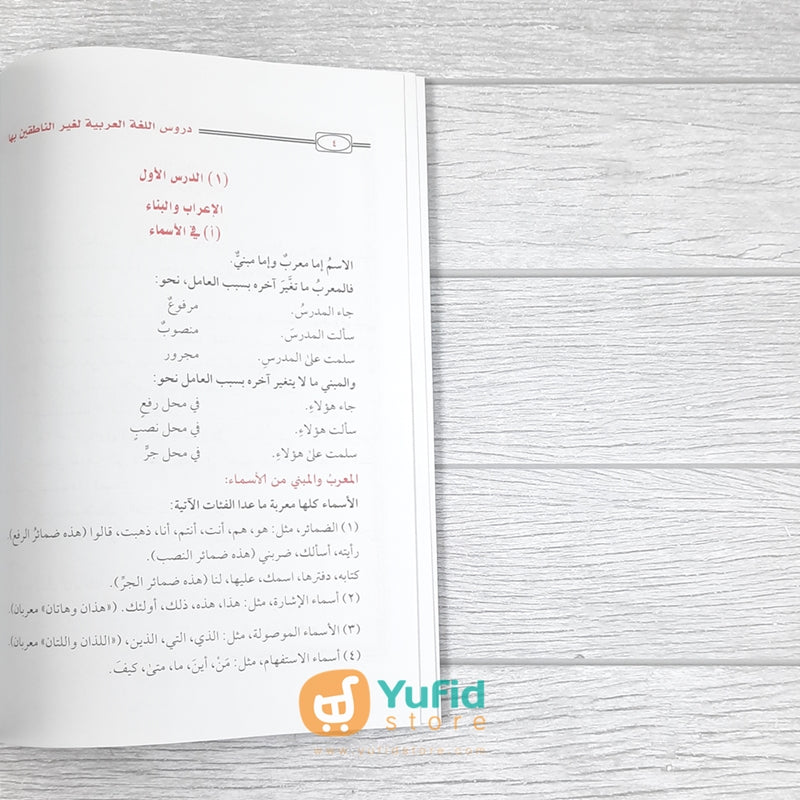 دروس اللغة العربية لغير الناطقين بها
٤
(١) الدرس الأول
الإعراب والبناء
(أ) في الأسماء
الاسمُ إما معربٌ وإما مبنيٌّ.
فالمعربُ ما تغَّيرَ آخره بسبب العامل، نحو:
جاء المدرسُ. مرفوعٌ
سألت المدرسَ. منصوبٌ
سلمت على المدرسِ. مجرور
والمبني ما لا يتغير آخره بسبب العامل نحو:
جاء هؤلاءِ. في محل رفعٍ
سألت هؤلاءِ. في محل نصبٍ
سلمت على هؤلاءِ. في محل جرٍّ
المعربُ والمبني من الأسماء:
الأسماء كلها معربة ما عدا الفئات الآتية:
(١) الضمائر، مثل: هو، هم، أنت، أنتم، أنا، ذهبت، قالوا (هذه ضمائرُ الرفع).
رأيته، أسألك، ضربني (هذه ضمائر النصب).
كتابه، دفترها، اسمك، عليها، لنا (هذه ضمائر الجرِّ).
(٢) أسماء الإشارة، مثل: هذا، هذه، ذلك، أولئك. («هذان وهاتان» معربان).
(٣) الأسماء الموصولة، مثل: الذي، التي، الذين، («اللذان واللتان» معربان).
(٤) أسماء الاستفهام، مثل: مَنْ، أينَ، ما، متىٰ، كيفَ.
Yufid
store
www.yufidstore.com